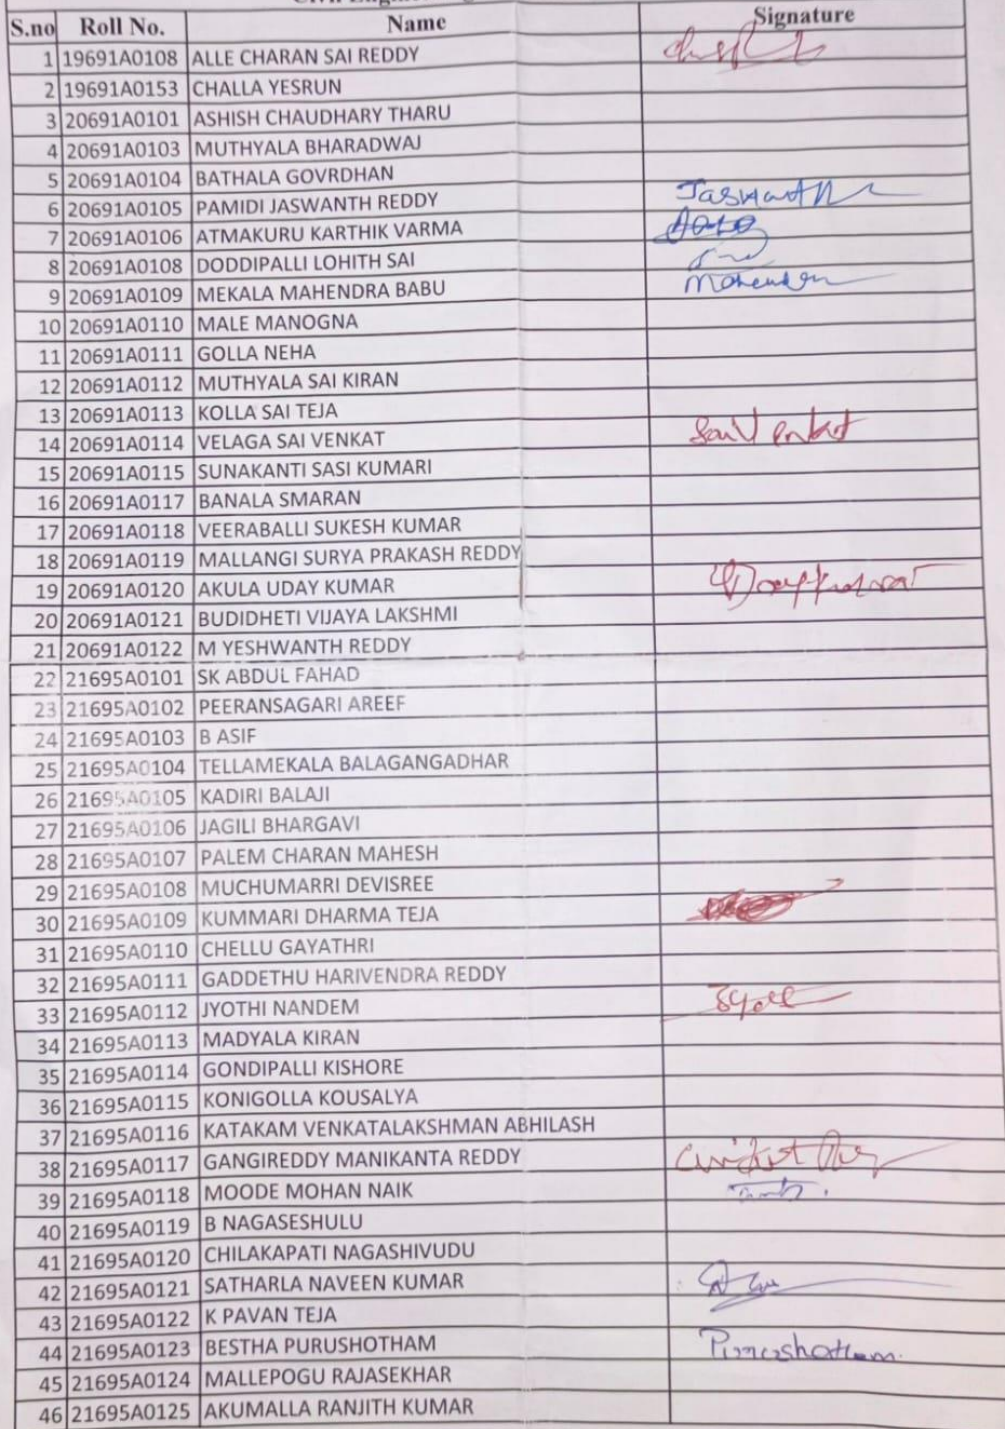 S.no Roll No. Name Signature
1 19691A0108 ALLE CHARAN SAI REDDY
2 19691A0153 CHALLA YESRUN
3 20691A0101 ASHISH CHAUDHARY THARU
4 20691A0103 MUTHYALA BHARADWAJ
5 20691A0104 BATHALA GOVRDHAN
6 20691A0105 PAMIDI JASWANTH REDDY Jaswanth
7 20691A0106 ATMAKURU KARTHIK VARMA
8 20691A0108 DODDIPALLI LOHITH SAI
9 20691A0109 MEKALA MAHENDRA BABU
10 20691A0110 MALE MANOGNA
11 20691A0111 GOLLA NEHA
12 20691A0112 MUTHYALA SAI KIRAN
13 20691A0113 KOLLA SAI TEJA
14 20691A0114 VELAGA SAI VENKAT Sai Venkat
15 20691A0115 SUNAKANTI SASI KUMARI
16 20691A0117 BANALA SMARAN
17 20691A0118 VEERABALLI SUKESH KUMAR
18 20691A0119 MALLANGI SURYA PRAKASH REDDY
19 20691A0120 AKULA UDAY KUMAR
20 20691A0121 BUDIDHETI VIJAYA LAKSHMI
21 20691A0122 M YESHWANTH REDDY
22 21695A0101 SK ABDUL FAHAD
23 21695A0102 PEERANSAGARI AREEF
24 21695A0103 B ASIF
25 21695A0104 TELLAMEKALA BALAGANGADHAR
26 21695A0105 KADIRI BALAJI
27 21695A0106 JAGILI BHARGAVI
28 21695A0107 PALEM CHARAN MAHESH
29 21695A0108 MUCHUMARRI DEVISREE
30 21695A0109 KUMMARI DHARMA TEJA
31 21695A0110 CHELLU GAYATHRI
32 21695A0111 GADDETHU HARIVENDRA REDDY
33 21695A0112 JYOTHI NANDEM
34 21695A0113 MADYALA KIRAN
35 21695A0114 GONDIPALLI KISHORE
36 21695A0115 KONIGOLLA KOUSALYA
37 21695A0116 KATAKAM VENKATALAKSHMAN ABHILASH
38 21695A0117 GANGIREDDY MANIKANTA REDDY
39 21695A0118 MOODE MOHAN NAIK
40 21695A0119 B NAGASESHULU
41 21695A0120 CHILAKAPATI NAGASHIVUDU
42 21695A0121 SATHARLA NAVEEN KUMAR
43 21695A0122 K PAVAN TEJA
44 21695A0123 BESTHA PURUSHOTHAM Purushotham.
45 21695A0124 MALLEPOGU RAJASEKHAR
46 21695A0125 AKUMALLA RANJITH KUMAR